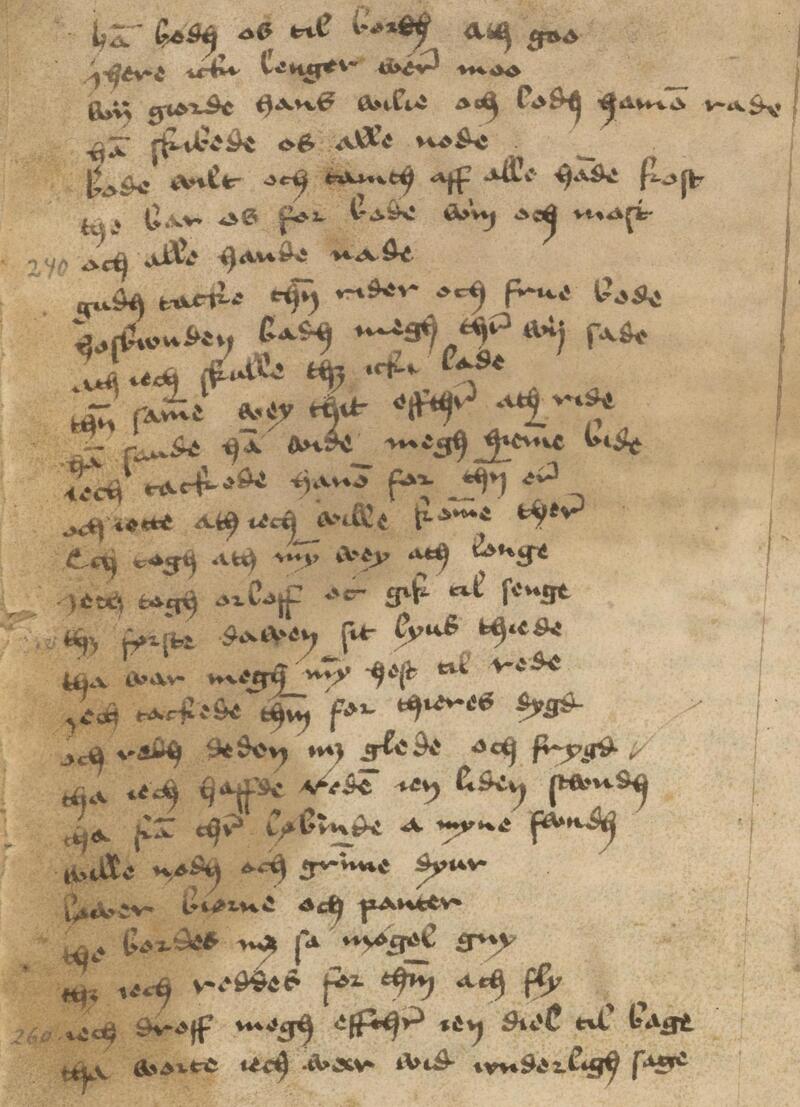 hā bodh os til bordh ath goo
jhere icki lenger wer̄ moo
wij giorde hans wilie och lodh hanō rade
hā skikede os alle node
bode wilt och tamth aff alle hāde kost
the bar os for bode win och most
240 och alle hande nade
gudh tacke thn̄ rider och frue bode
hosbonden badh megh thr̄ wij sade
ath iech skulle thz icki lade
thn̄ sam̄e wey thit effthr̄ ath ride
hā sande hā wide megh hiem̄e bide
iech tackede hanō for thn̄ er̄
och iette ath iech wille kom̄e ther̄
Ech togh ath my̅ wey ath longe
jech togh orloff oc gik til senge
thz første dawen sit lyus thiede
tha war megh my̅ hest til rede
jech tackede thm̄ for thieres dygd
och redh deden mz glede och frygd
tha iech haffde redē ien liden stwndh
tha kā thr̄løbinde a myne fwndh
wille nødh och grim̄e dyur
løwer biørne och panter
the bordes mz sa møgel gny
thz iech reddes for thm̄ ath fly
260 iech droff megh effthr̄ ien diel til bage
tha worte iech war wid wnderligh sage